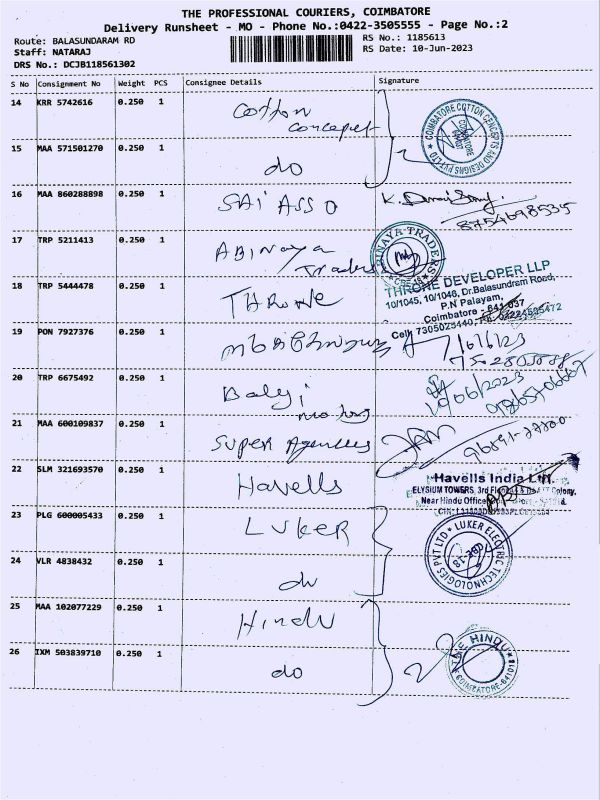 THE PROFESSIONAL COURIERS, COIMBATORE
Delivery Runsheet - MO - Phone No.:0422-3505555 - Page No.:2
Route: BALASUNDARAM RD
RS No.: 1185613
Staff: NATARAJ
RS Date: 10-Jun-2023
DRS No.: DCJB118561302
S No Consignment No Weight PCS Consignee Details Signature
14 KRR 5742616 0.250 1 Cotton
concept
15 MAA 571501270 0.250 1 do
COIMBATORE COTTON CONCEPTS AND DESIGNS PVT LTD
16 MAA 860288898 0.250 1 SAI ASSO
8754698535
17 TRP 5211413 0.250 1 ABINaya
Traders
ABINAYA TRADERS
18 TRP 5444478 0.250 1 THRONE
THRONE DEVELOPER LLP
10/1045, 10/1046, Dr.Balasundram Road,
P.N Palayam,
Coimbatore - 641 037
19 PON 7927376 0.250 1
20 TRP 6675492 0.250 1 Balaji
10/06/2023
21 MAA 600109837 0.250 1 Super Agencies
22 SLM 321693570 0.250 1 Havells
Havells India Ltd.
ELYSIUM TOWERS, 3rd Floor
Near Hindu Office
23 PLG 600005433 0.250 1 LUKER
24 VLR 4838432 0.250 1 do
LUKER ELECTRIC TECHNOLOGIES PVT LTD
25 MAA 102077229 0.250 1 Hindu
26 IXM 503839710 0.250 1 do
THE HINDU
COIMBATORE-641018